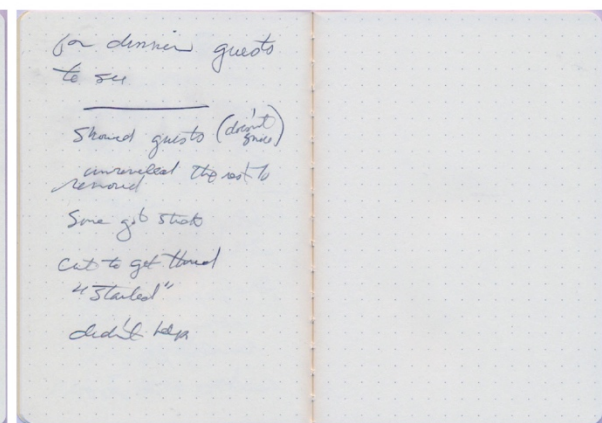 for dinner guests
to see
Showed guests (doesn't
unraveled the rest to
Some got
cut to get thread
"started"
didn't help